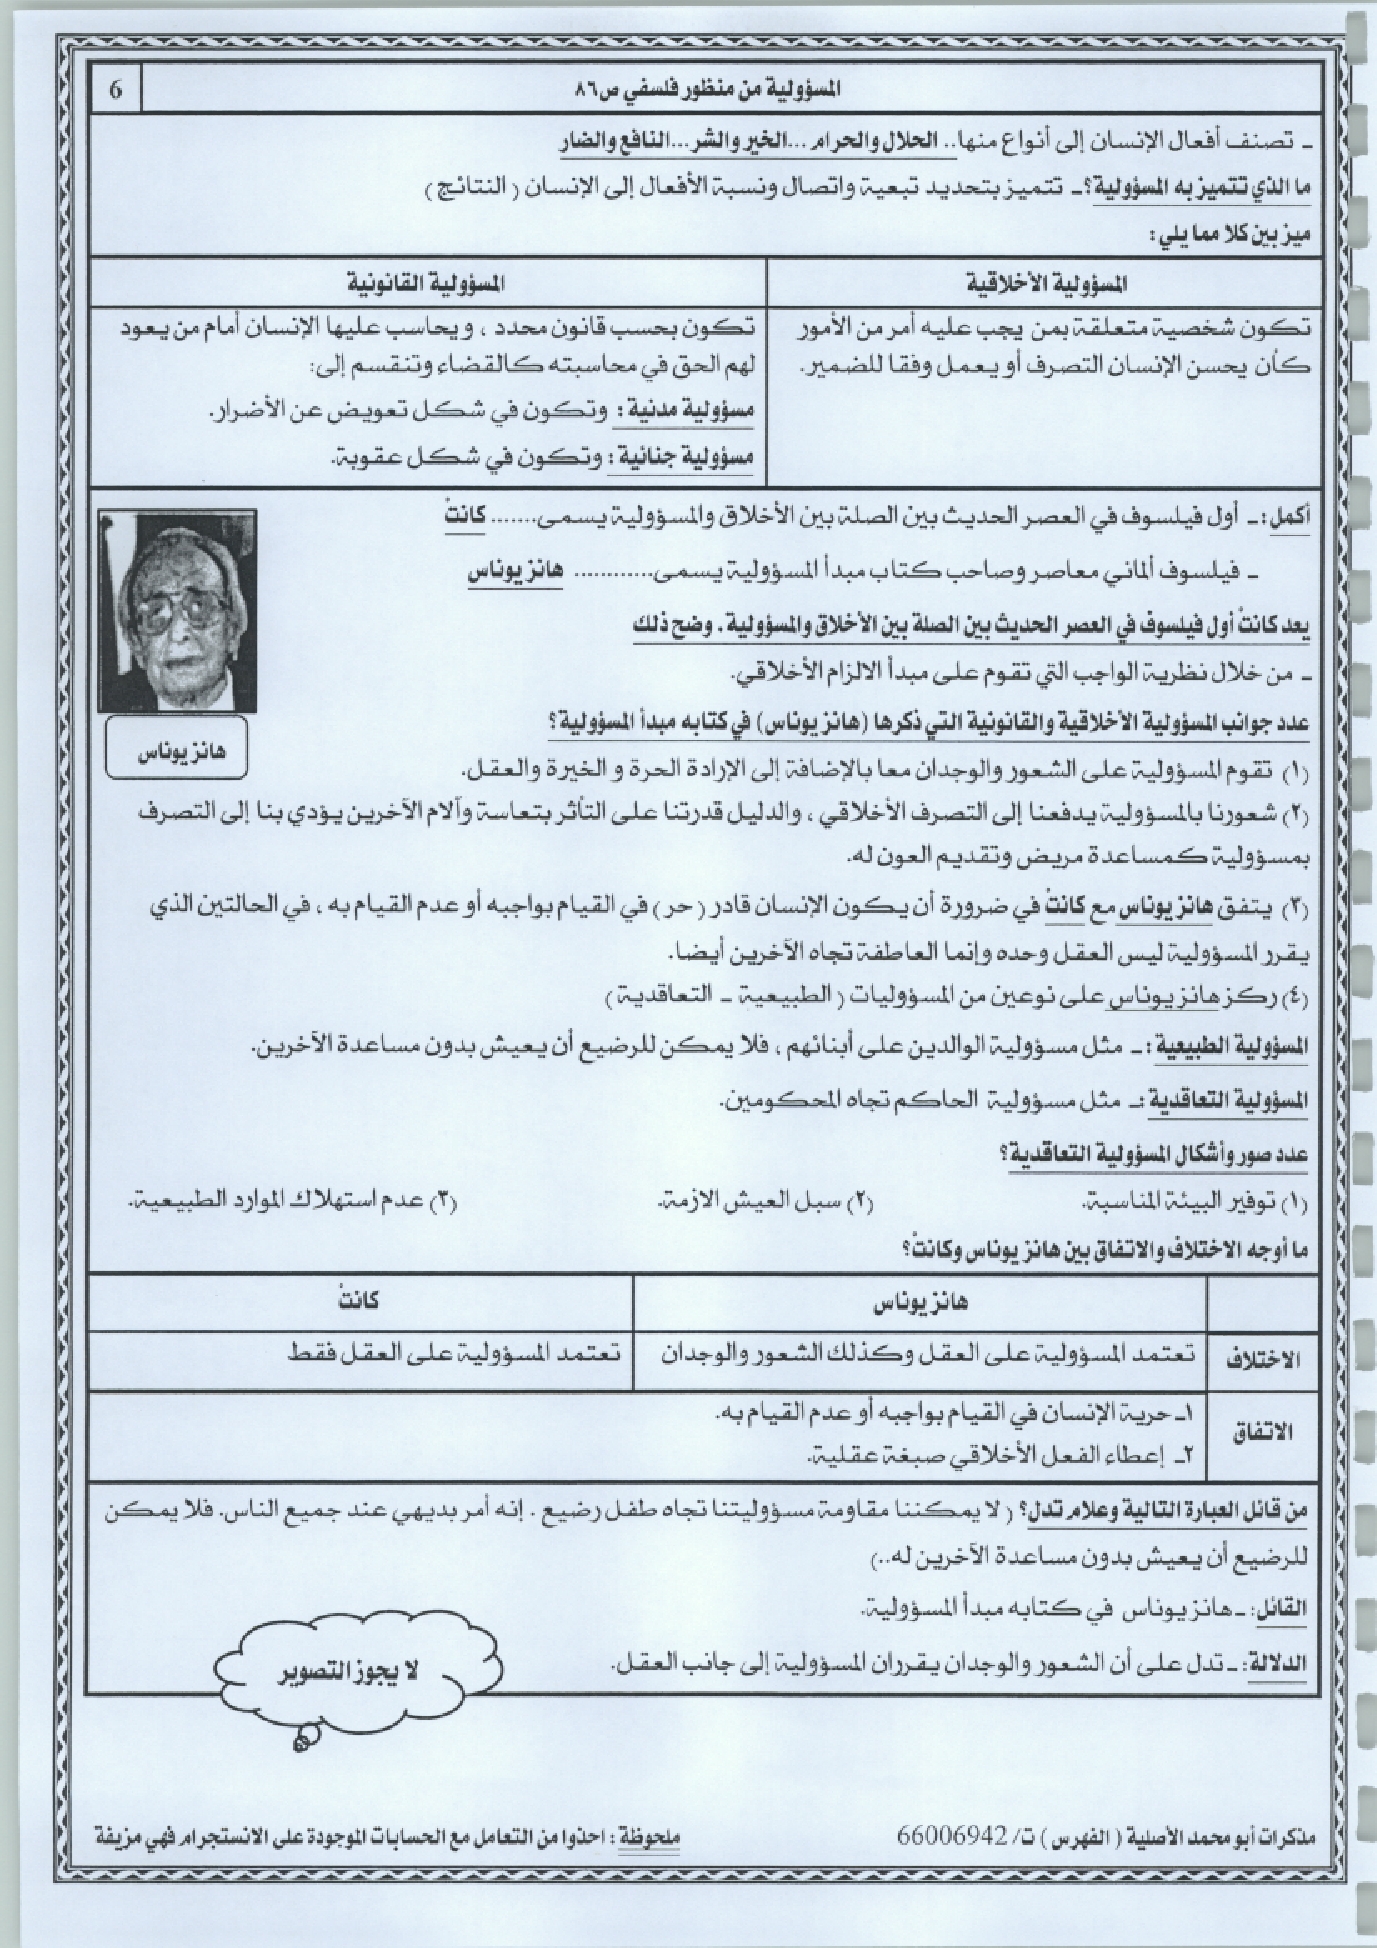 المسؤولية من منظور فلسفي ص٨٦
6
ـ تصنف أفعال الإنسان إلى أنواع منها.. الحلال والحرام ...الخير والشر...النافع والضار
ما الذي تتميز به المسؤولية؟ـ تتميز بتحديد تبعية واتصال ونسبة الأفعال إلى الإنسان ( النتائج )
ميز بين كلا مما يلي :
المسؤولية الأخلاقية
تكون شخصية متعلقة بمن يجب عليه أمر من الأمور
كأن يحسن الإنسان التصرف أو يعمل وفقا للضمير.
المسؤولية القانونية
تكون بحسب قانون محدد ، ويحاسب عليها الإنسان أمام من يعود
لهم الحق في محاسبته كالقضاء وتنقسم إلى:
مسؤولية مدنية : وتكون في شكل تعويض عن الأضرار.
مسؤولية جنائية : وتكون في شكل عقوبة.
أكمل :ـ أول فيلسوف في العصر الحديث بين الصلة بين الأخلاق والمسؤولية يسمى....... كانتْ
ـ فيلسوف ألماني معاصر وصاحب كتاب مبدأ المسؤولية يسمى............ هانز يوناس
يعد كانتْ أول فيلسوف في العصر الحديث بين الصلة بين الأخلاق والمسؤولية . وضح ذلك
ـ من خلال نظرية الواجب التي تقوم على مبدأ الالزام الأخلاقي.
هانز يوناس
عدد جوانب المسؤولية الأخلاقية والقانونية التي ذكرها (هانز يوناس) في كتابه مبدأ المسؤولية؟
(١) تقوم المسؤولية على الشعور والوجدان معا بالإضافة إلى الإرادة الحرة و الخيرة والعقل.
(٢) شعورنا بالمسؤولية يدفعنا إلى التصرف الأخلاقي ، والدليل قدرتنا على التأثر بتعاسة وآلام الآخرين يؤدي بنا إلى التصرف
بمسؤولية كمساعدة مريض وتقديم العون له.
(٣) يتفق هانز يوناس مع كانتْ في ضرورة أن يكون الإنسان قادر ( حر ) في القيام بواجبه أو عدم القيام به ، في الحالتين الذي
يقرر المسؤولية ليس العقل وحده وإنما العاطفة تجاه الآخرين أيضا.
(٤) ركز هانز يوناس على نوعين من المسؤوليات ( الطبيعية ـ التعاقدية )
المسؤولية الطبيعية :ـ مثل مسؤولية الوالدين على أبنائهم ، فلا يمكن للرضيع أن يعيش بدون مساعدة الآخرين.
المسؤولية التعاقدية :ـ مثل مسؤولية الحاكم تجاه المحكومين.
عدد صور وأشكال المسؤولية التعاقدية؟
(١) توفير البيئة المناسبة. (٢) سبل العيش الازمة. (٣) عدم استهلاك الموارد الطبيعية.
ما أوجه الاختلاف والاتفاق بين هانز يوناس وكانتْ؟
هانز يوناس كانتْ
الاختلاف تعتمد المسؤولية على العقل وكذلك الشعور والوجدان تعتمد المسؤولية على العقل فقط
الاتفاق
١ـ حرية الإنسان في القيام بواجبه أو عدم القيام به.
٢ـ إعطاء الفعل الأخلاقي صبغة عقلية.
من قائل العبارة التالية وعلام تدل؟ ( لا يمكننا مقاومة مسؤوليتنا تجاه طفل رضيع . إنه أمر بديهي عند جميع الناس. فلا يمكن
للرضيع أن يعيش بدون مساعدة الآخرين له..)
القائل :ـ هانز يوناس في كتابه مبدأ المسؤولية.
الدلالة :ـ تدل على أن الشعور والوجدان يقرران المسؤولية إلى جانب العقل.
لا يجوز التصوير
مذكرات أبو محمد الأصلية ( الفهرس ) ت/ 66006942
ملحوظة : احذوا من التعامل مع الحسابات الموجودة على الانستجرام فهي مزيفة